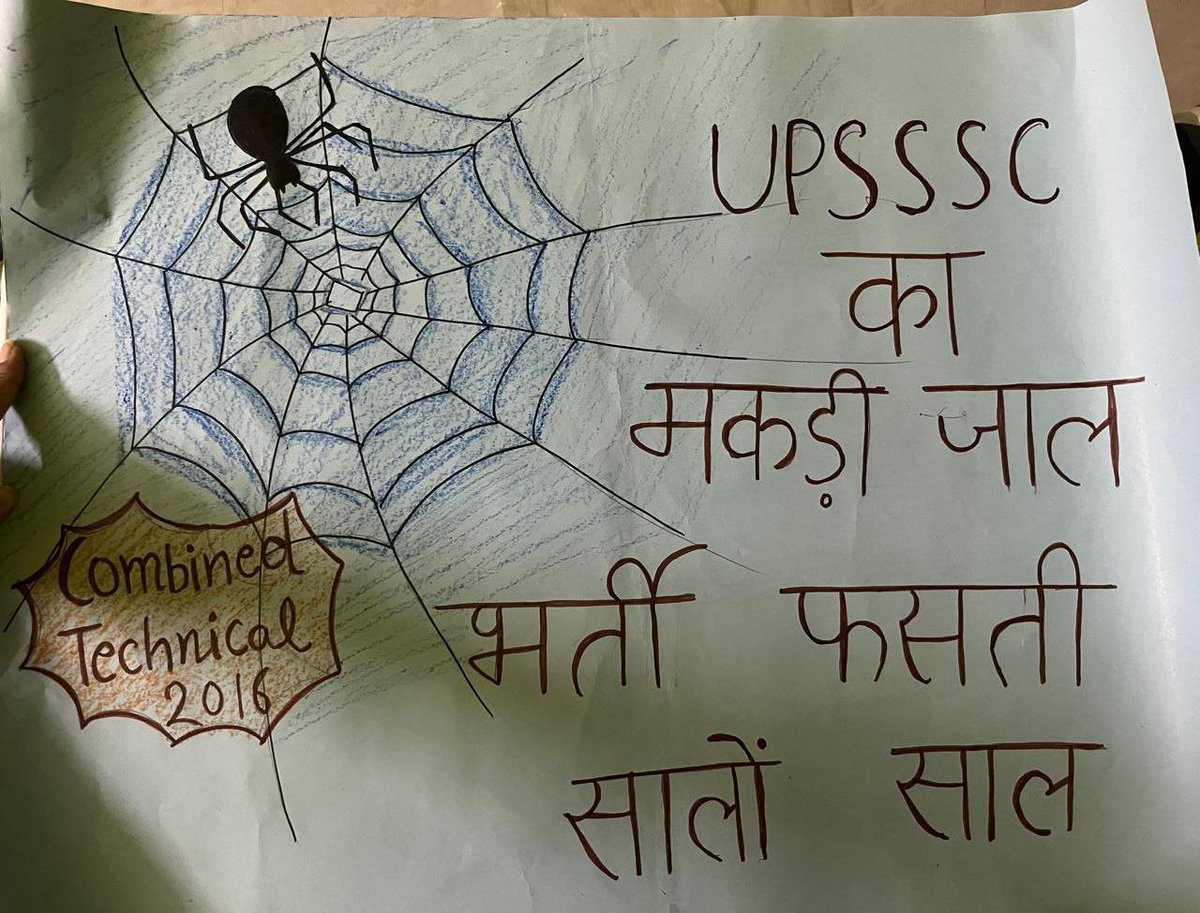 UPSSSC
का
मकड़ी जाल
भर्ती फसती
सालों साल
Combined
Technical
2016